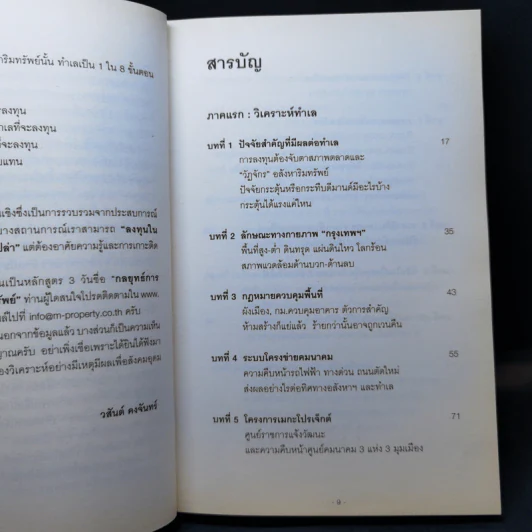 าริมทรัพย์นั้น ทำเลเป็น 1 ใน 8 ขั้นตอน
รลงทุน
าเลที่จะลงทุน
ที่จะลงทุน
บแทน
เชิงซึ่งเป็นการรวบรวมจากประสบการณ์
บางสถานการณ์เราสามารถ "ลงทุนใน
ปล่า" แต่ต้องอาศัยความรู้และการเกาะติด
นเป็นหลักสูตร 3 วันชื่อ "กลยุทธ์การ
รัพย์" ท่านผู้ใดสนใจโปรดติดตามใน www.
ลล์ไปที่ info@m-property.co.th ครับ
นอกจากข้อมูลแล้ว บางส่วนก็เป็นความเห็น
ญาณครับ อย่าเพิ่งเชื่อเพราะได้ยินได้ฟังมา
องวิเคราะห์อย่างมีเหตุมีผลเพื่อสังคมอุดม
วสันต์ คงจันทร์
สารบัญ
ภาคแรก : วิเคราะห์ทำเล
บทที่ 1 ปัจจัยสำคัญที่มีผลต่อทำเล 17
การลงทุนต้องจับตาสภาพตลาดและ
"วัฏจักร" อสังหาริมทรัพย์
ปัจจัยกระตุ้นหรือกระทืบดีมานด์มีอะไรบ้าง
กระตุ้นได้แรงแค่ไหน
บทที่ 2 ลักษณะทางกายภาพ "กรุงเทพฯ" 35
พื้นที่สูง-ต่ำ ดินทรุด แผ่นดินไหว โลกร้อน
สภาพแวดล้อมด้านบวก-ด้านลบ
บทที่ 3 กฎหมายควบคุมพื้นที่ 43
ผังเมือง, กม.ควบคุมอาคาร ตัวการสำคัญ
ห้ามสร้างก็แย่แล้ว ร้ายกว่านั้นอาจถูกเวนคืน
บทที่ 4 ระบบโครงข่ายคมนาคม 55
ความคืบหน้ารถไฟฟ้า ทางด่วน ถนนตัดใหม่
ส่งผลอย่างไรต่อทิศทางอสังหาฯ และทำเล
บทที่ 5 โครงการเมกะโปรเจ็กต์ 71
ศูนย์ราชการแจ้งวัฒนะ
และความคืบหน้าศูนย์คมนาคม 3 แห่ง 3 มุมเมือง
- 9 -